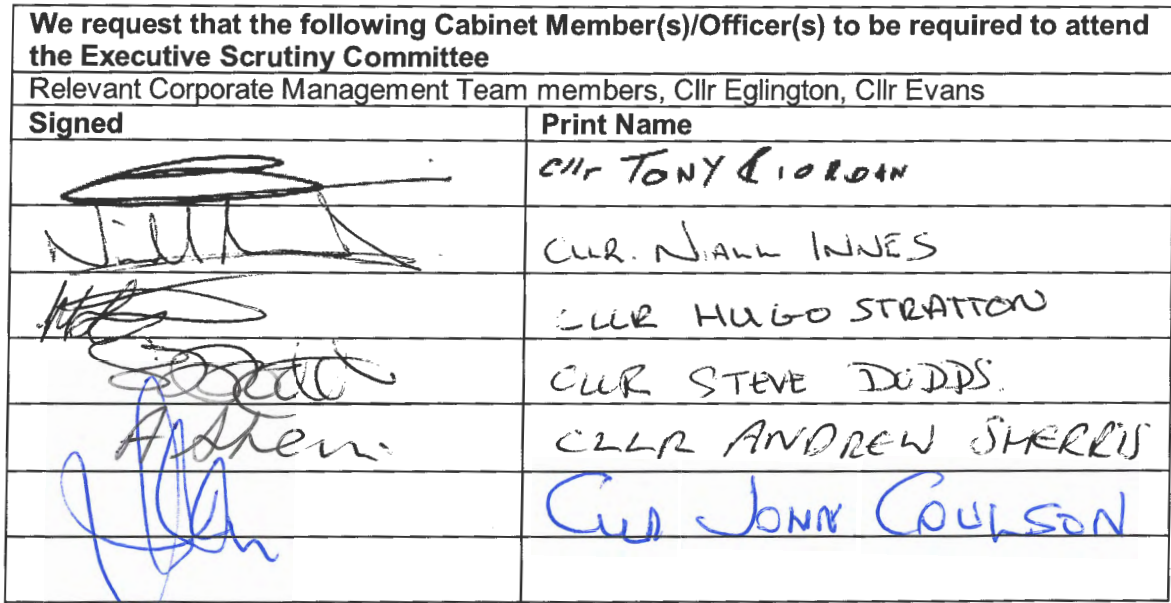 We request that the following Cabinet Member(s)/Officer(s) to be required to attend
the Executive Scrutiny Committee
Relevant Corporate Management Team members, Cllr Eglington, Cllr Evans
Signed Print Name
Cllr TONY RIORDAN
CLLR. NIALL INNES
CLLR HUGO STRATTON
CLLR STEVE DODDS
A Sherris CLLR ANDREW SHERRIS
Cllr JOHN COULSON